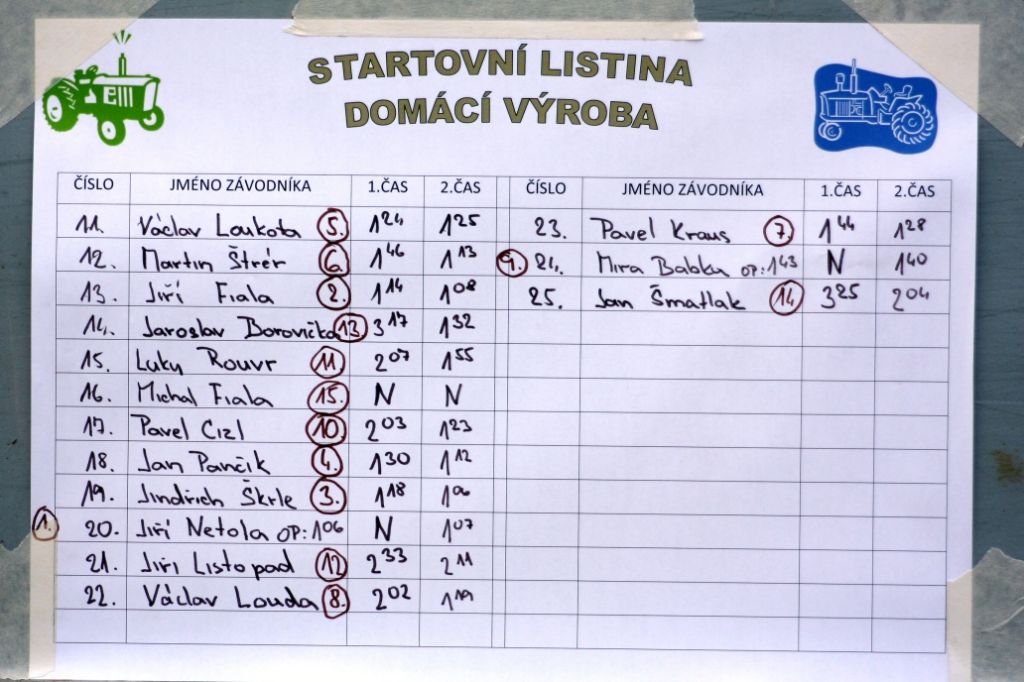 STARTOVNÍ LISTINA
DOMÁCÍ VÝROBA
ČÍSLO JMÉNO ZÁVODNÍKA 1.ČAS 2.ČAS ČÍSLO JMÉNO ZÁVODNÍKA 1.ČAS 2.ČAS
11. Václav Loukota 5. 1 24 1 25 23. Pavel Kraus 7. 1 44 1 28
12. Martin Štrér 6. 1 46 1 13 9. 24. Míra Babka OP: 1 43 N 1 40
13. Jiří Fiala 2. 1 14 1 08 25. Jan Šmatlak 14. 3 25 2 04
14. Jaroslav Borovička 13. 3 17 1 32
15. Luky Rouvr 11. 2 07 1 55
16. Michal Fiala 15. N N
17. Pavel Cizl 10. 2 03 1 23
18. Jan Pančík 4. 1 30 1 12
19. Jindřich Škrle 3. 1 18 1
1. 20. Jiří Netola OP: 1 06 N 1 07
21. Jiří Listopad 12. 2 33 2 11
22. Václav Louda 8. 2 02 1 19